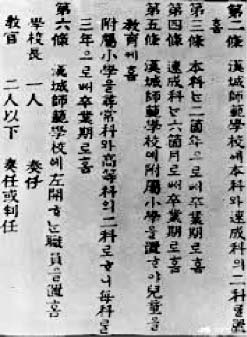 第二條 漢城師範學校에本科와速成科의二科를置
홈
第三條 本科는二箇年으로써卒業期로홈
第四條 速成科는六箇月로써卒業期로홈
第五條 漢城師範學校에附屬小學을置하야兒童을
敎育케홈
附屬小學을尋常科와高等科의二科로호니每科를
三年으로써卒業期로홈
第六條 漢城師範學校에左開하는職員을置홈
學校長 一人 奏任
敎官 二人以下 奏任或判任